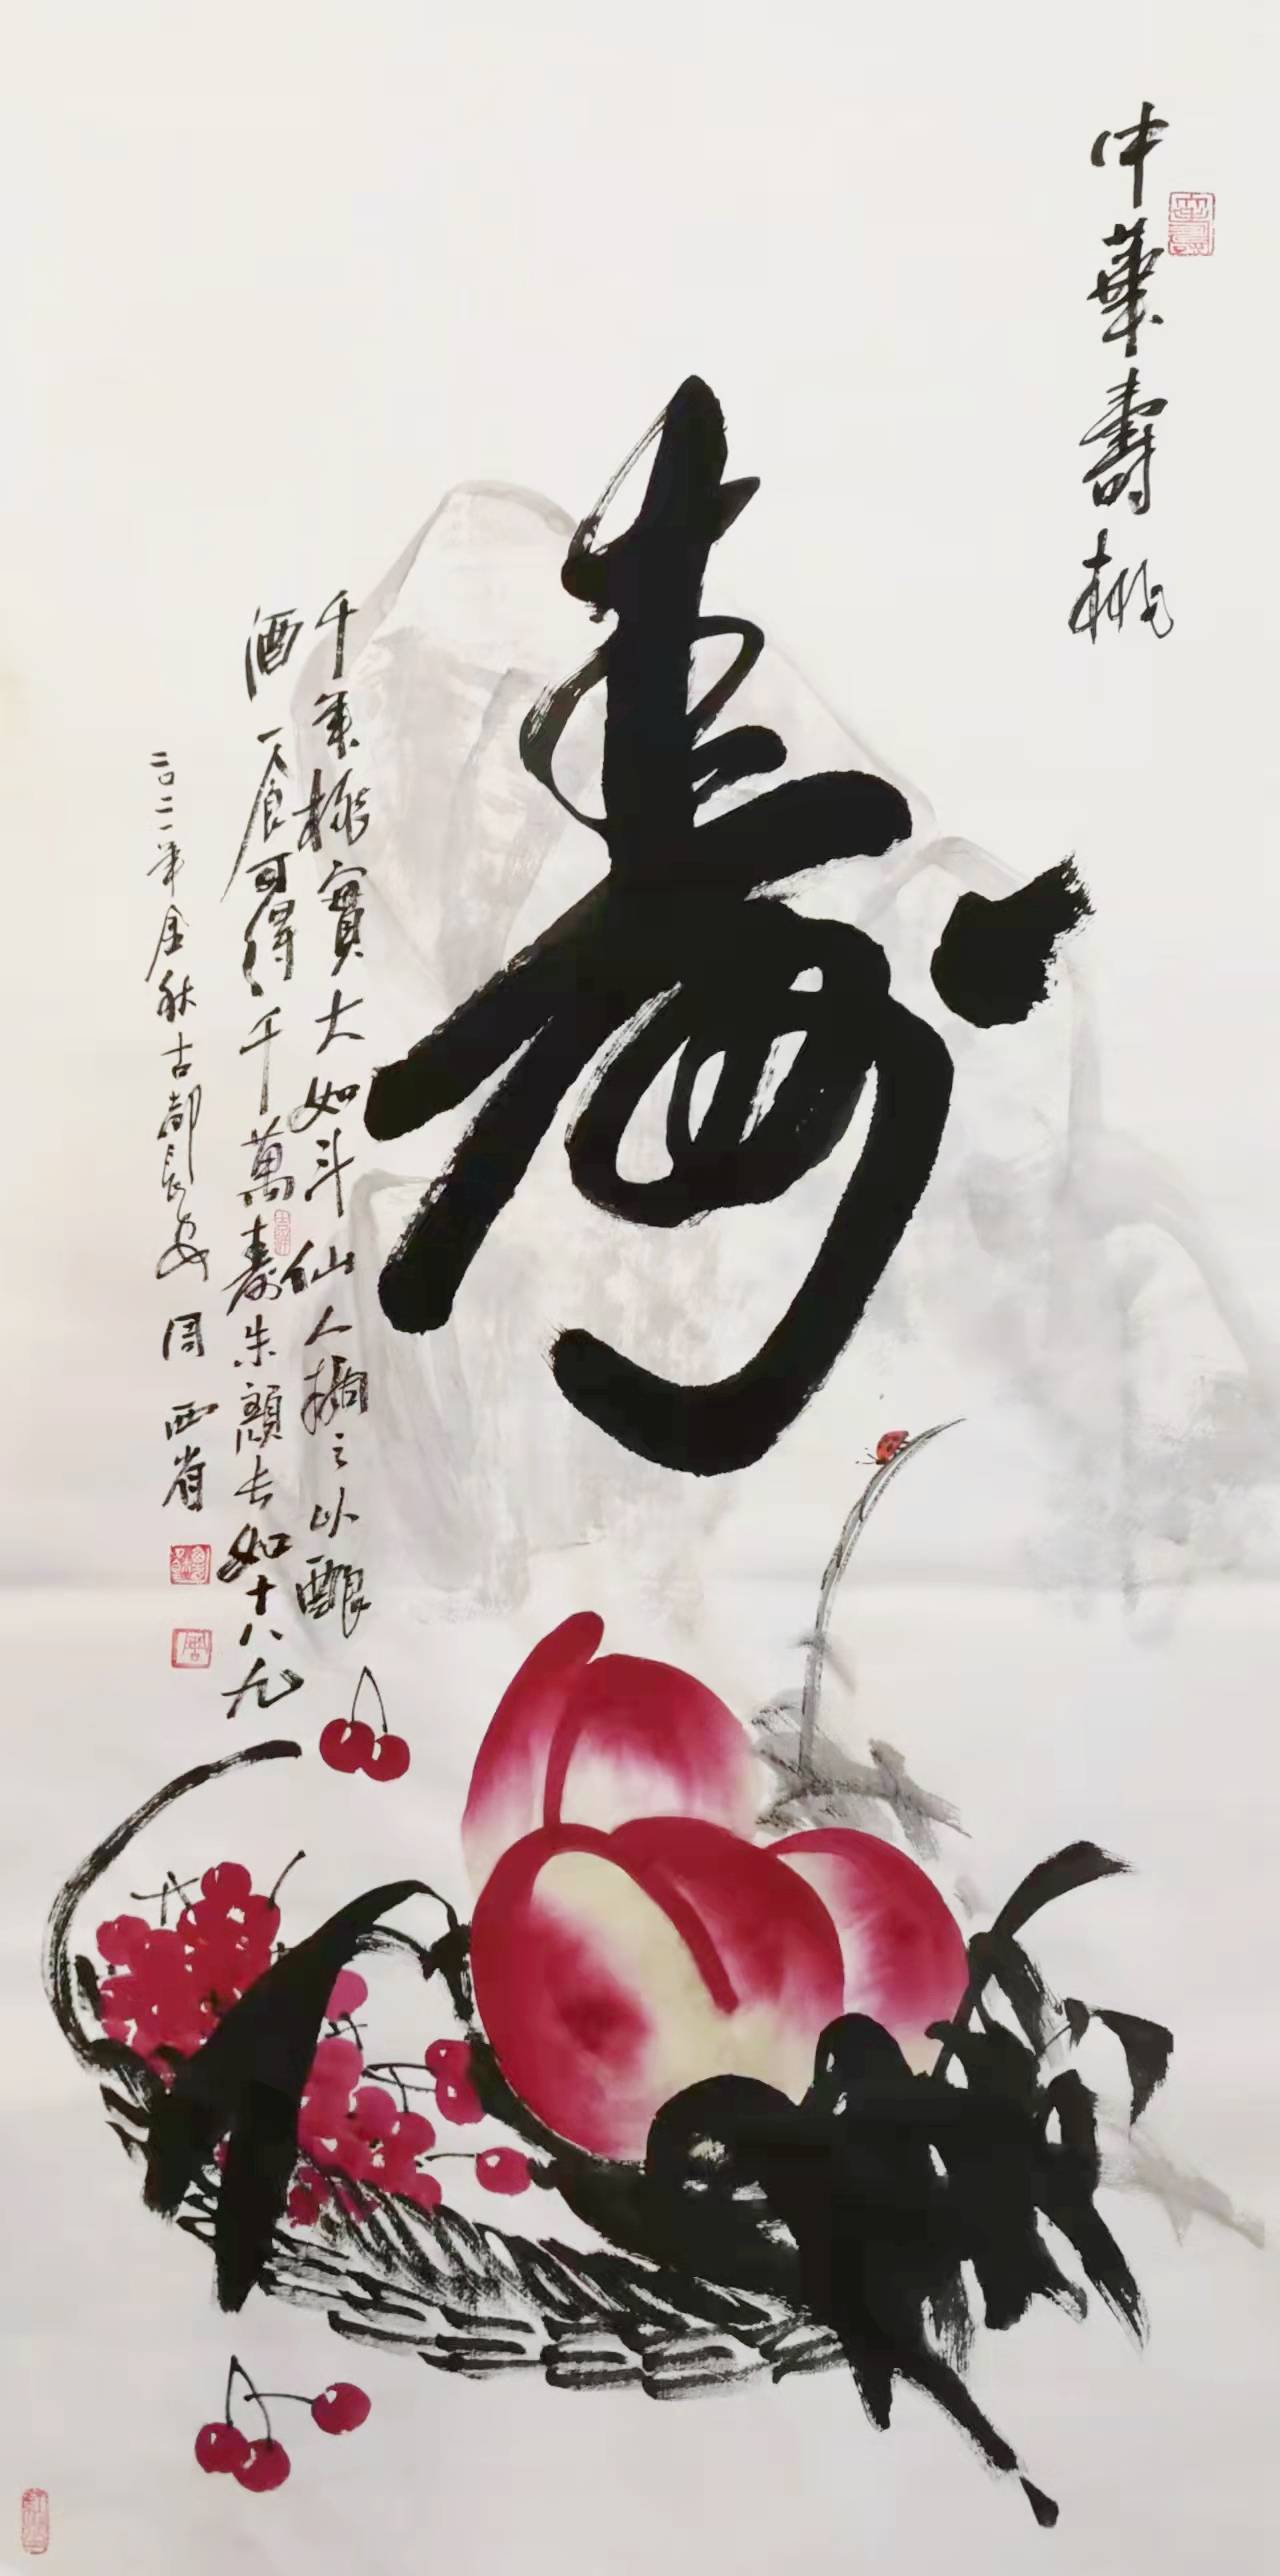 中華壽桃
壽
千年桃實大如斗仙人摘之以釀
酒一食可得千萬壽朱顏長如十八九
二〇二一年金秋古都長安周西省